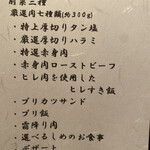 前菜二種
厳選肉七種類(約300g)
・特上厚切りタン塩
・厳選厚切りハラミ
・特選赤身肉
・赤身肉ローストビーフ
・ヒレ肉を使用した
ヒレすき飯
・ブリカツサンド
・ブリ飯
・霜降り肉
・選べるしめのお食事
・デザート